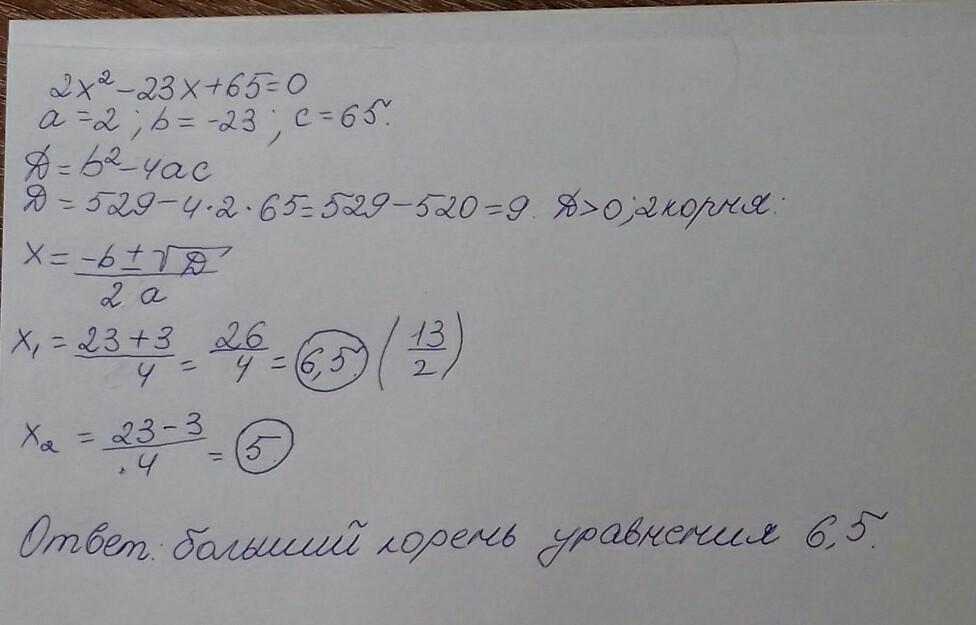 2x²-23x+65=0
a=2; b=-23; c=65.
D=b²-4ac
D=529-4·2·65=529-520=9. D>0; 2 корня:
x=(-b±√D)/(2a)
x₁=(23+3)/4=26/4=6,5 (13/2)
x₂=(23-3)/4=5
Ответ: больший корень уравнения 6,5.